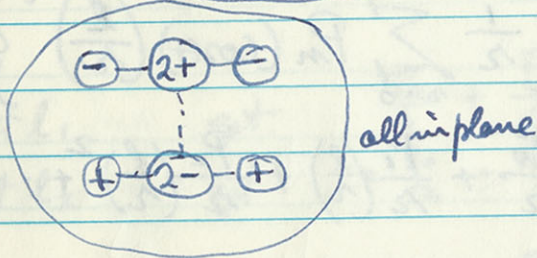 - 2+ -
all in plane
+ 2- +